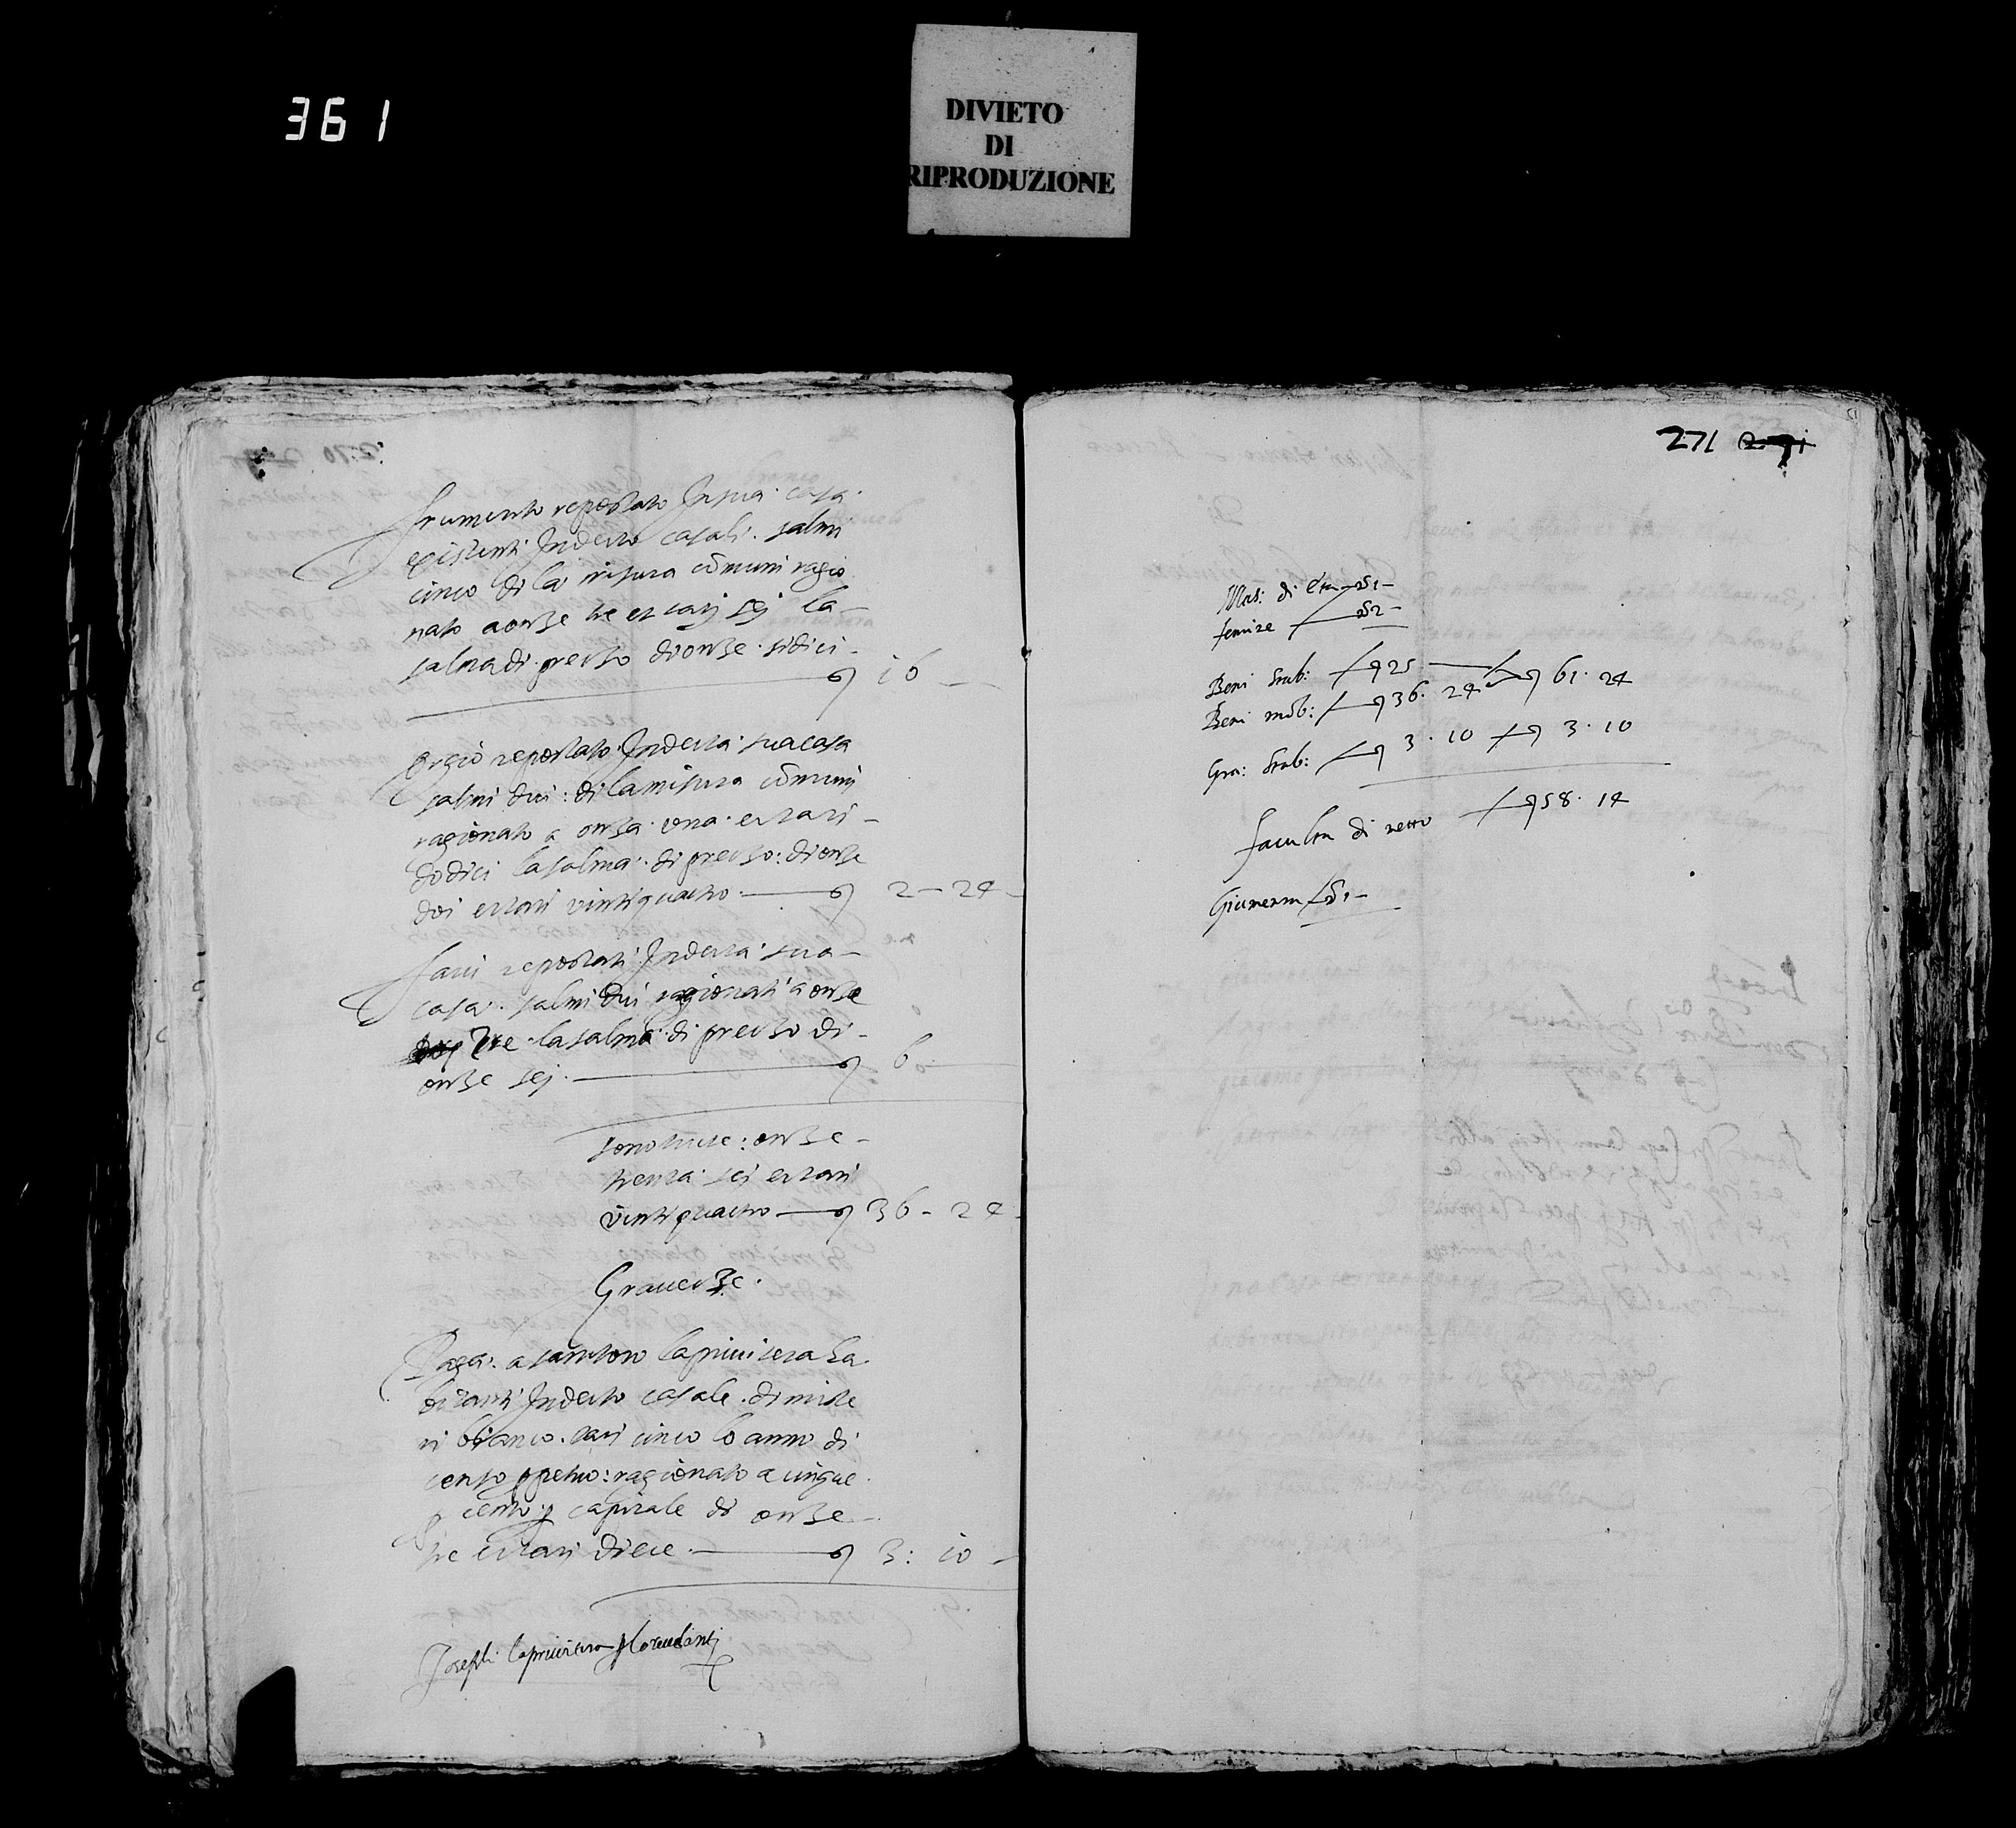 361
DIVIETO
DI
RIPRODUZIONE
frumento repostato In sua casa
existenti Indecto casali salmi
cinco di la misura cõmuni ragio
nato a onze tre et tarj sej la
salma di prezzo di onze sidici 16
Orgio repostato Indecta sua casa
salmi dui: di la misura cõmuni
ragionato a onza una et tari
dodici la salma di prezzo: di onze
doi et tari vintiquatro 2 - 24
favi repostati Indecta sua
casa salmi dui ragionati a onze
tre la salma di prezzo di
onze sej 6
sono tucte: onze
trenta sei et tari
vintiquatro 36 - 24
Gravezze
Paga a lapriuitera ha
bitanti Indecto casale di miste
ri bianco tari cinco lo anno di
censo ppetuo: ragionato a cinque
p cento p capitale di onze
tre et tari diece 3: 10
Josephi lapriuitera
271
Mas: di Eta 1
femine 2
Beni stab: 25 61. 24
Beni mob: 36. 24
Gra: stab: 3. 10 3. 10
faculta di netto 58. 14
Giumenta 1